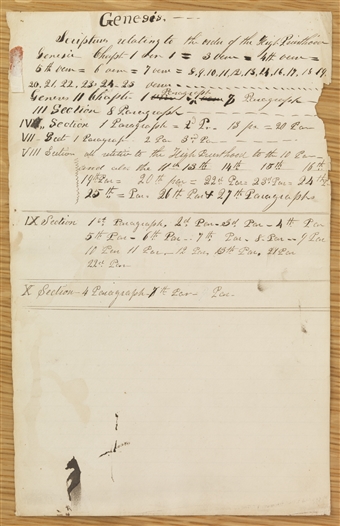 Genesis. —
Scripture relating to the order of the High Priesthood
Genesis Chapt 1 ver 1 = 3 vem = 4th vem =
5th vem = 6 vem = 7 vem = 8, 9, 10, 11, 12, 13, 14, 16, 17, 18 19,
20, 21, 22, 23, 24, 25 vem
Genesis 11 Chapt. Paragraph 8 Paragraph
III Section 8 Paragraph
IV Section 1 Paragraph = 2 P. 13 = 20 Par
VII - Sect 1 Paragraph 2 Par 3d P.
VIII Section all relates to the High Priesthood to the 10 Par
and also the 11th 13th 14th 15th 16th
19th Par = 20th par = 22d Par 23d Par = 24th P
25th = Par. 26th Par & 27th Paragraph
IX Section 1st Paragraph, 2d Par - 3d Par - 4th Par
5th Par - 6th Par - 7th Par - 8. Par - 9 Par
10 Par 11 Par. - 12 Par, 13th Par, 21 Par
22d Par
X Section - 4 Paragraph - 7th Par Par